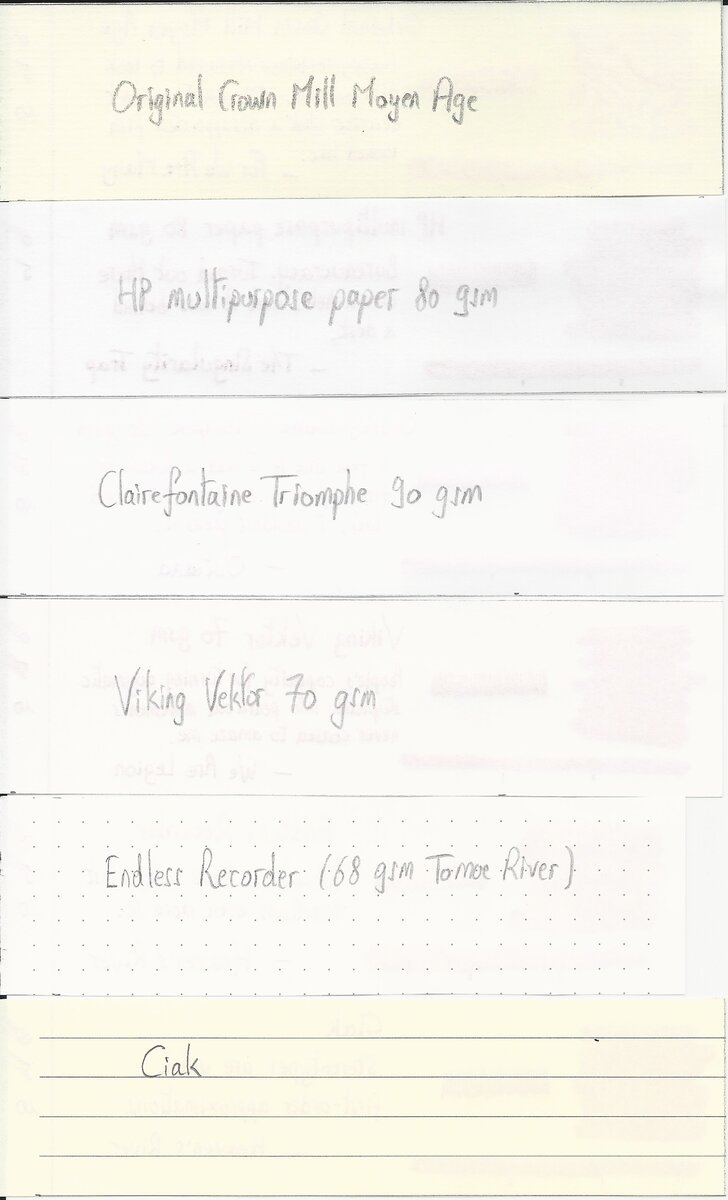 Original Crown Mill Moyen Age
HP multipurpose paper 80 gsm
Clairefontaine Triomphe 90 gsm
Viking Vektor 70 gsm
Endless Recorder (68 gsm Tomoe River)
Ciak